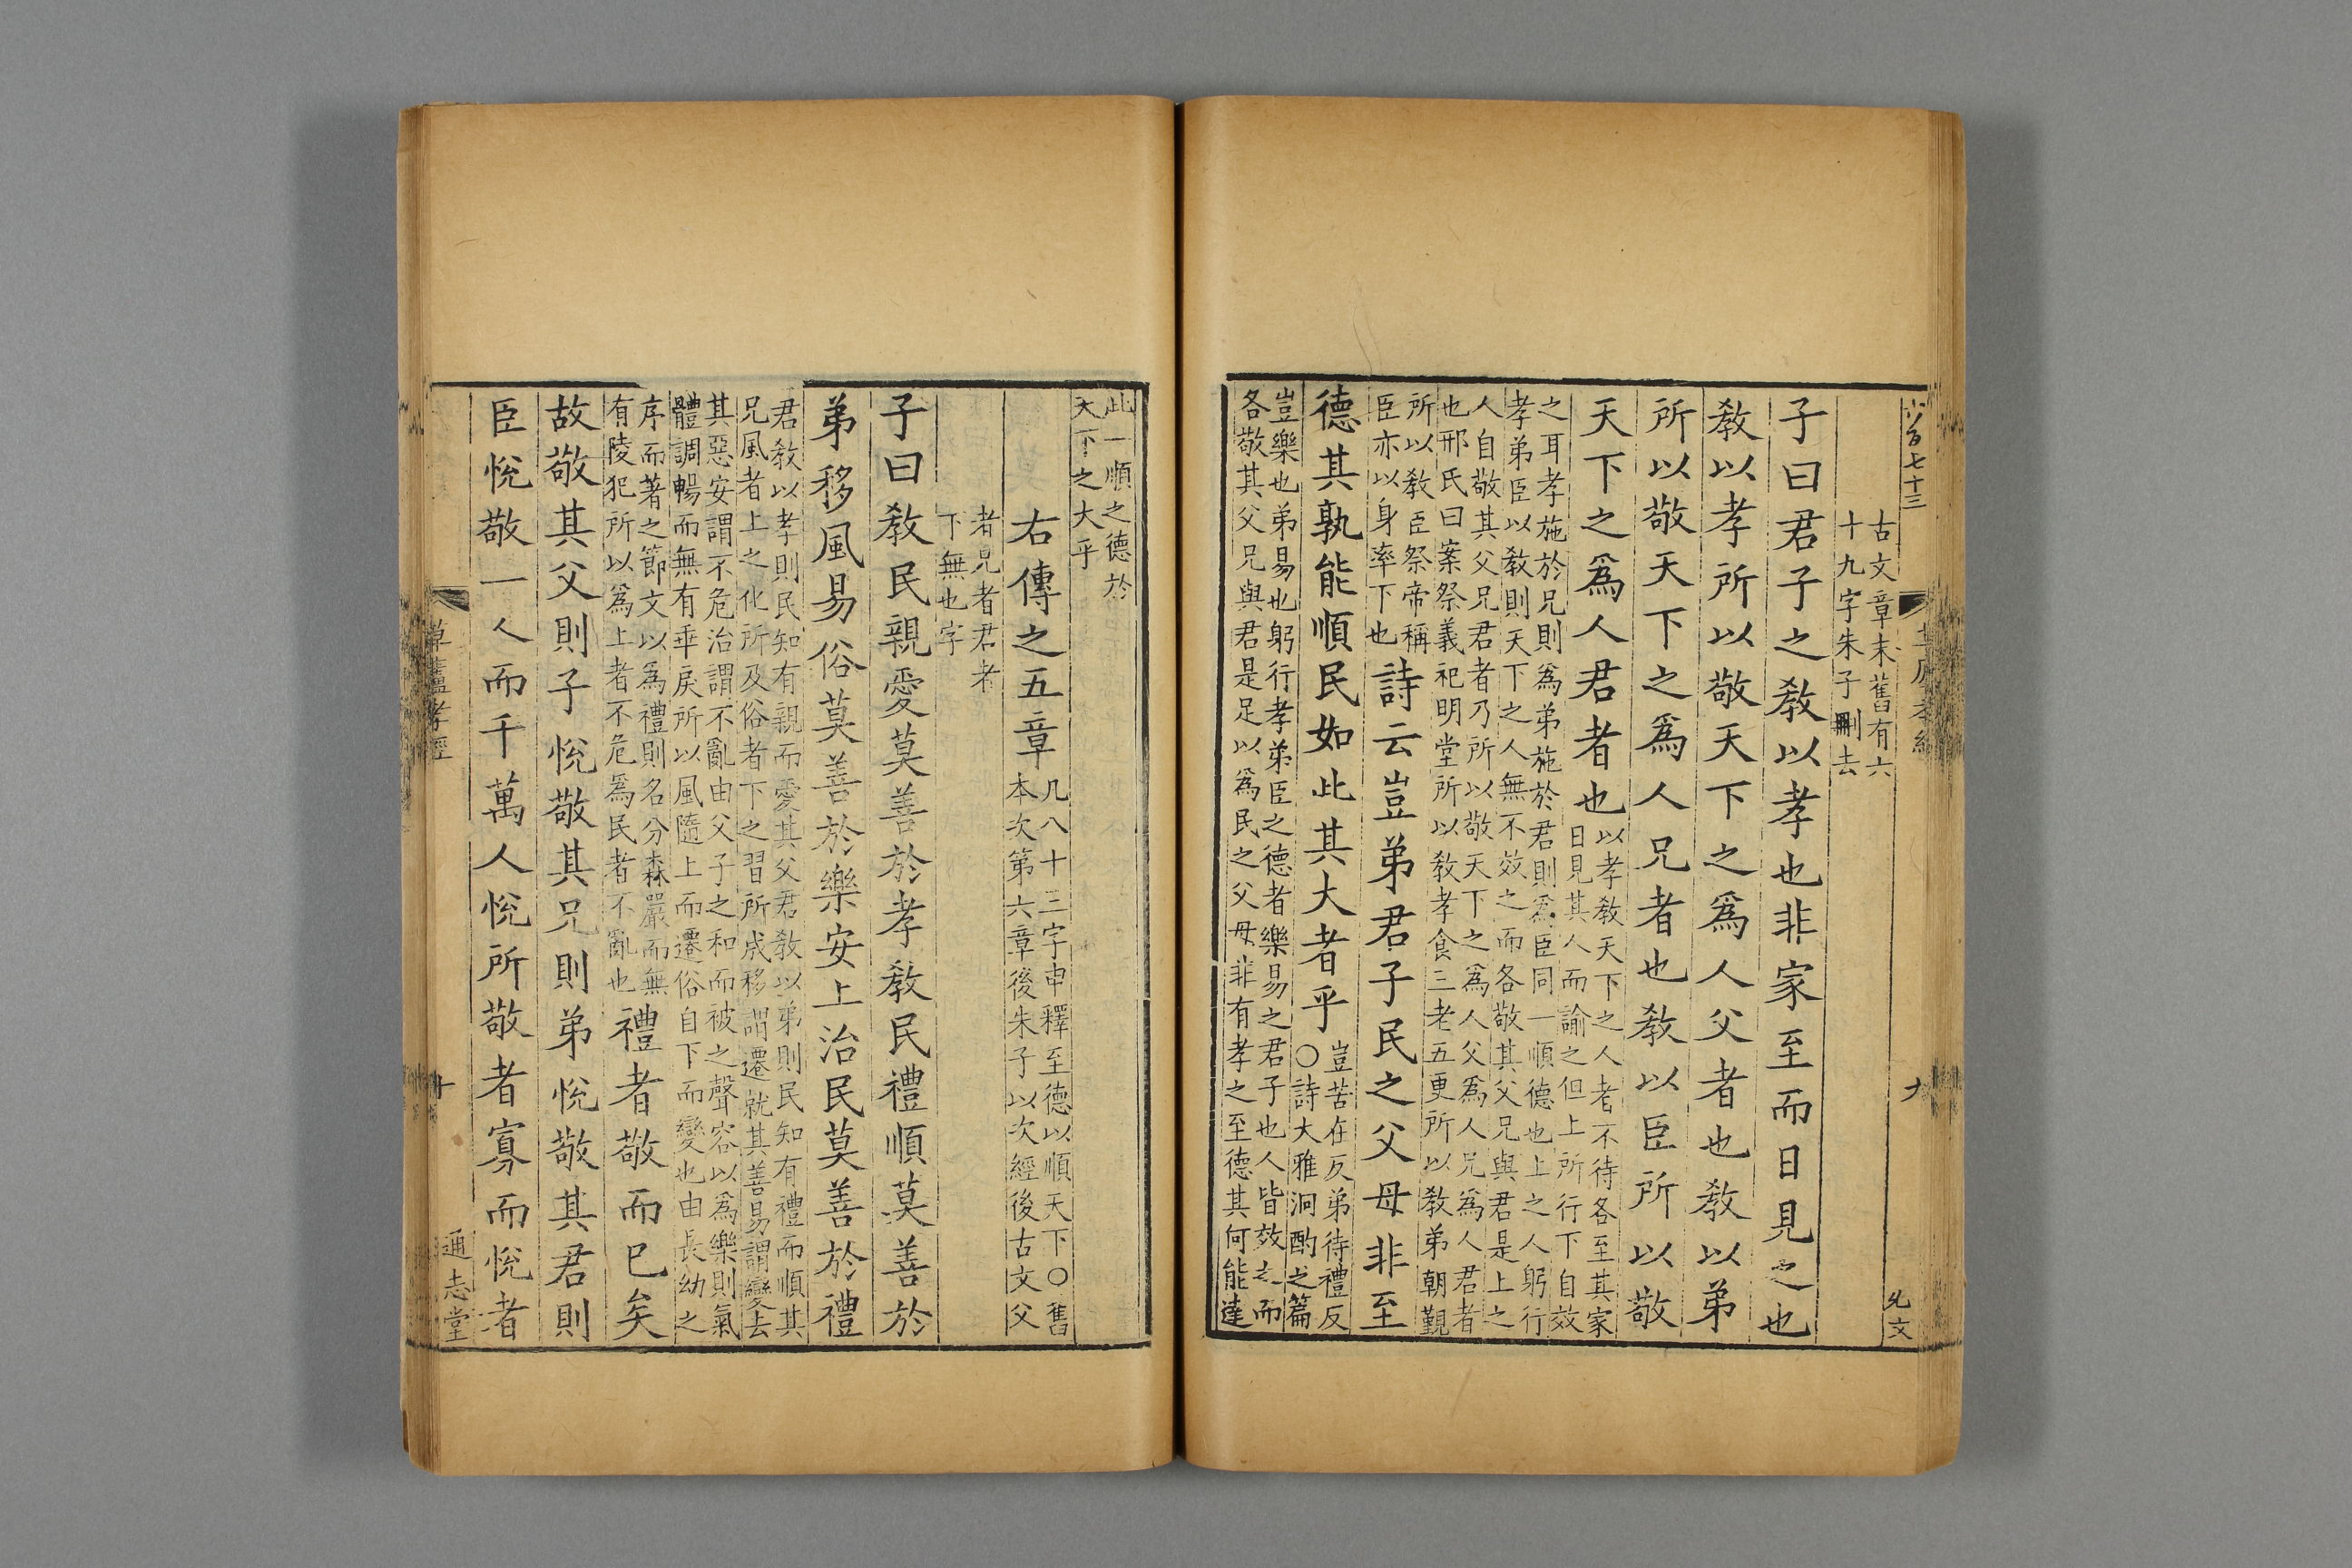 古文章末舊有六
十九字朱子刪去
子曰君子之教以孝也非家至而日見之也
教以孝所以敬天下之爲人父者也教以弟
所以敬天下之爲人兄者也教以臣所以敬
天下之爲人君者也
以孝教天下之人者不待各至其家
日見其人而諭之但上所行下自效
之耳孝施於兄則爲弟施於君則爲臣同一順德也上之人躬行
孝弟臣以教則天下之人無不效之而各敬其父兄與君是上之
人自敬其父兄君者乃所以敬天下之爲人父爲人兄爲人君者
也邢氏曰案祭義祀明堂所以教孝食三老五更所以教弟朝覲
所以教臣祭帝稱
臣亦以身率下也
詩云豈弟君子民之父母非至
德其孰能順民如此其大者乎
豈苦在反弟待禮反
○詩大雅泂酌之篇
豈樂也弟易也躬行孝弟臣之德者樂易之君子也人皆效之而
各敬其父兄與君是足以爲民之父母非有孝之至德其何能達
九
允文
此一順之德於
天下之大乎
右傳之五章
凡八十三字申釋至德以順天下○舊
本次第六章後朱子以次經後古文父
者見者君者
下無也字
子曰教民親愛莫善於孝教民禮順莫善於
弟移風易俗莫善於樂安上治民莫善於禮
君教以孝則民知有親而愛其父君教以弟則民知有禮而順其
兄風者上之化所及俗者下之習所成移謂遷就其善易謂變去
其惡安謂不危治謂不亂由父子之和而被之聲容以爲樂則氣
體調暢而無有乖戾所以風隨上而遷俗自下而變也由長幼之
序而著之節文以爲禮則名分森嚴而無
有陵犯所以爲上者不危爲民者不亂也
禮者敬而已矣
故敬其父則子悅敬其兄則弟悅敬其君則
臣悅敬一人而千萬人悅所敬者寡而悅者
草廬孝經
十
通志堂